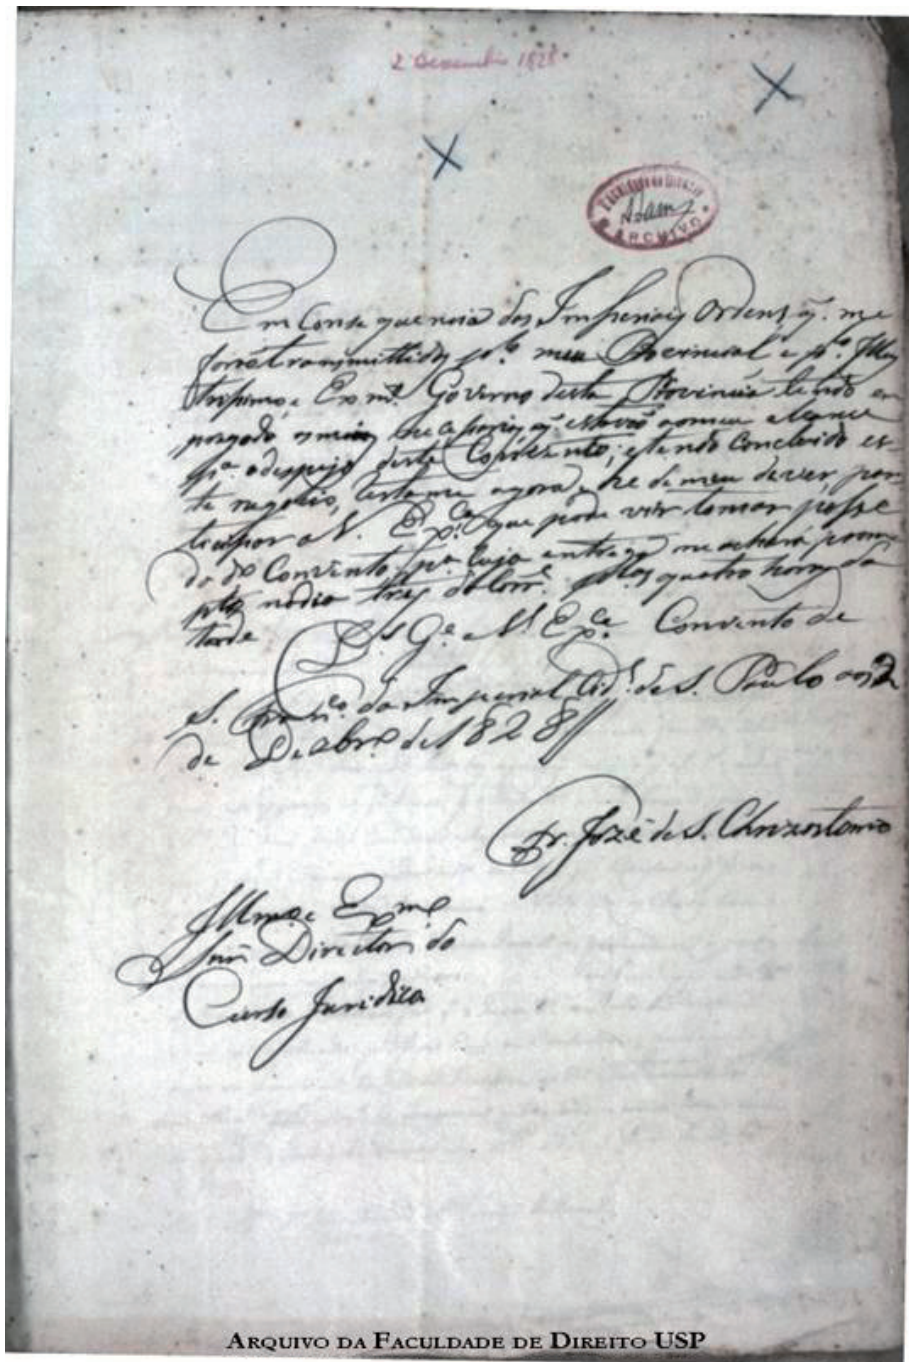 2 Dezembro 1828.
Faculdade de Direito
Adam
ARCHIVO
Em Conse quencia das Imperiaes Ordens q. me
forão transmittidas p.r meu Provincial e p.º Illus
trissimo, e Exmº Governo desta Provincia tendo em
pregado os meios q estavão ao meu alcance
pª o despejo deste Convento; e tendo concluido es-
te negocio, resta me agora e he de meu dever, par
ticipar a V. Exª que pode vir tomar posse
do dº Convento, pª cuja entrega me achará prom
pto no dia tres do corr.e pelas quatro horas da
tarde
D.s G.e a V. Ex.ca Convento de
S. Fran.co da Imperial Cid.e de S. Paulo aos 2
de Dezbrº de 1828//
Fr. Jozé de S. Chrizostomo
Illmo. e Exmº
Snr. Director do
Curso Juridico
ARQUIVO DA FACULDADE DE DIREITO USP